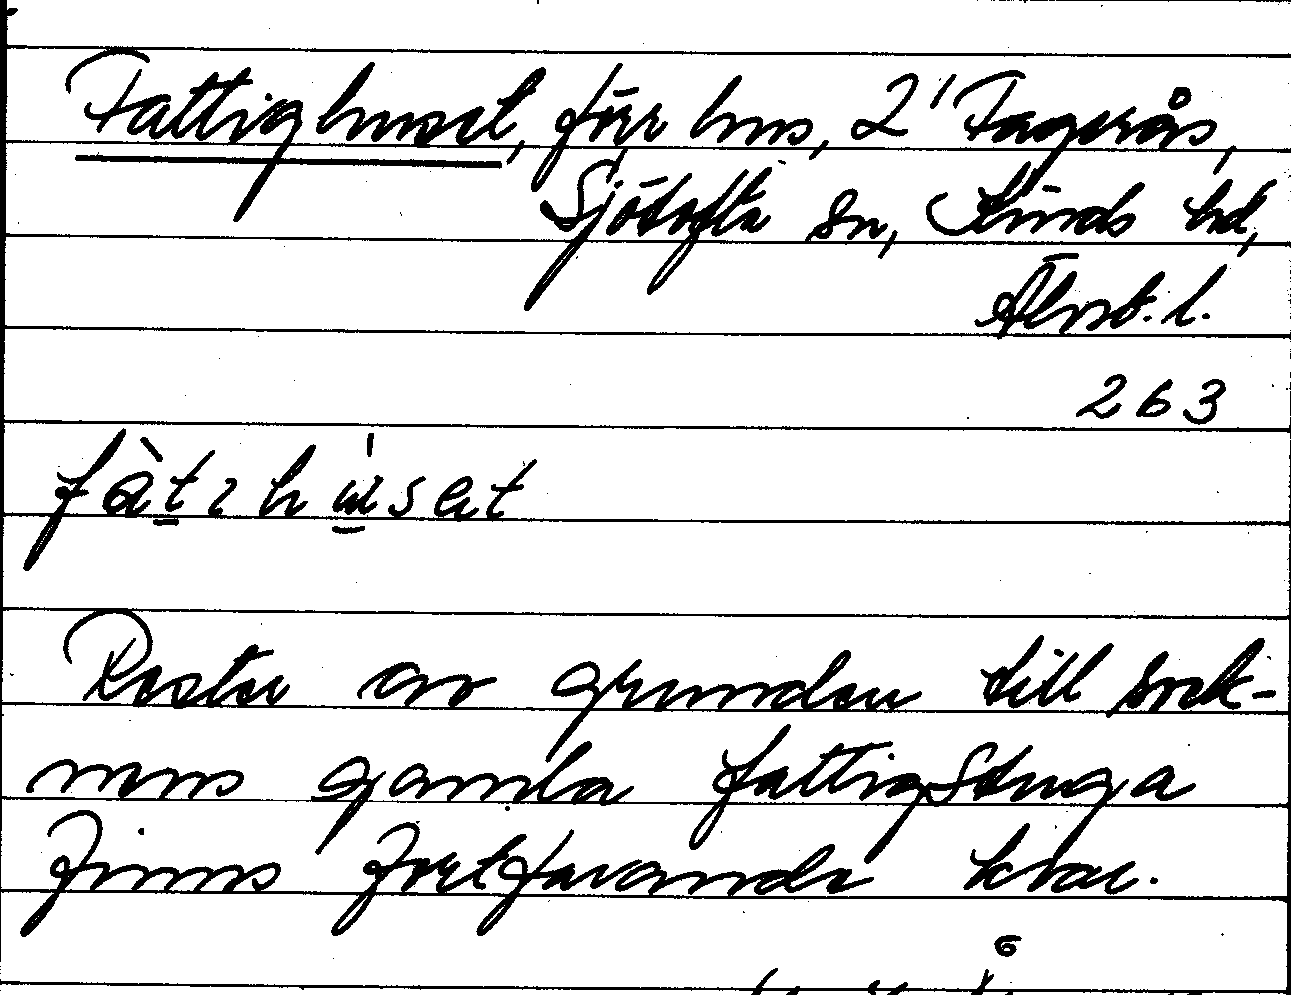 Fattighuset, förr hus, 2' Fagerås,
Sjötofta sn, Kinds hd,
Älvsb. l.
263
fàtɩhu̇set
Rester av grunden till sock-
nens gamla fattigstuga
finns fortfarande kvar.